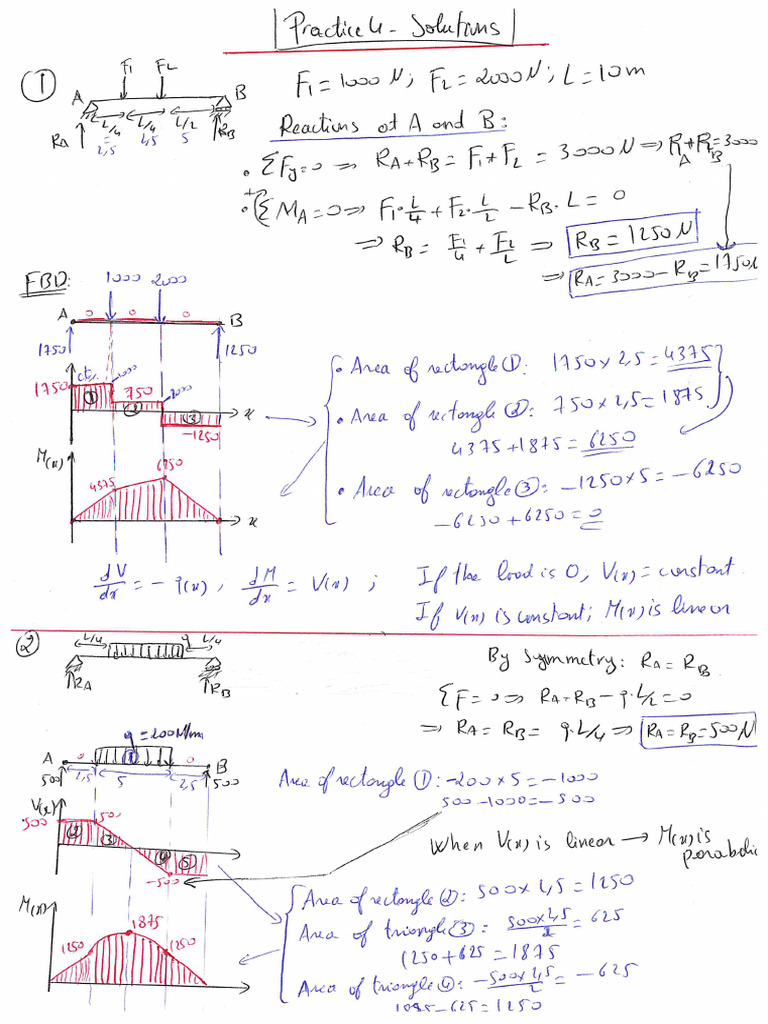 Practice 4 - Solutions
1
F1 F2
A B
L/4 L/4 L/2
RA 2,5 2,5 5 RB
F1 = 1000 N; F2 = 2000 N; L = 10 m
Reactions at A and B:
• ΣFy=0 => RA+RB = F1+F2 = 3000 N => RA+RB=3000
• ΣMA=0 => F1·L/4 + F2·L/2 − RB·L = 0
=> RB = F1/4 + F2/2 => RB = 1250 N
=> RA = 3000 − RB = 1750N
FBD:
1000 2000
A 0 0 0 B
1750 1250
1750 ct. 1000 750 2000
1 2 3 x
−1250
M(x)
4375 6250
x
• Area of rectangle 1: 1750 x 2,5 = 4375
• Area of rectangle 2: 750 x 2,5 = 1875
4375 + 1875 = 6250
• Area of rectangle 3: −1250 x 5 = −6250
−6250 + 6250 = 0
dV/dx = − q(x), dM/dx = V(x) ; If the load is 0, V(x) = constant
If V(x) is constant; M(x) is linear
2
L/4 q L/4
RA RB
By symmetry: RA = RB
ΣF=0 => RA+RB − q·L/2 = 0
=> RA = RB = q·L/4 => RA = RB = 500 N
q = 200 N/m
A 0 1 0 B
500 2,5 5 2,5 500
Area of rectangle 1: −200 x 5 = −1000
500 − 1000 = −500
V(x)
500 500
2 3 4 5
−500
When V(x) is linear → M(x) is
parabolic
M(x)
1250 1875 1250
Area of rectangle 2: 500 x 2,5 = 1250
Area of triangle 3: 500 x 2,5/2 = 625
1250 + 625 = 1875
Area of triangle 4: −500 x 2,5/2 = −625
1875 − 625 = 1250